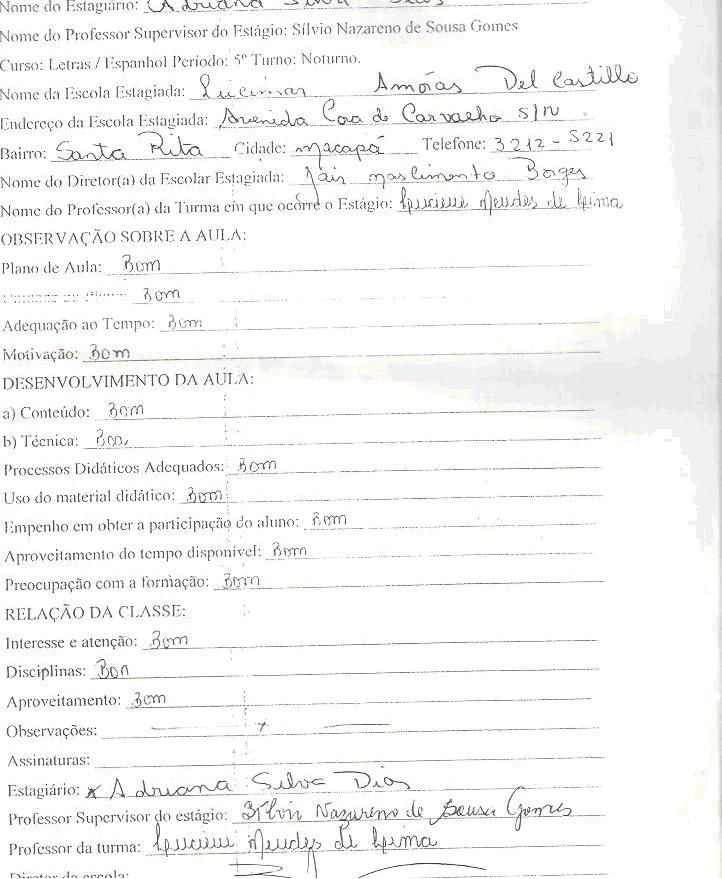 Nome do Estagiário: Adriana Silva Dias
Nome do Professor Supervisor do Estágio: Sílvio Nazareno de Sousa Gomes
Curso: Letras / Espanhol Período: 5º Turno: Noturno.
Nome da Escola Estagiada: Lucimar Amoras Del Castillo
Endereço da Escola Estagiada: Avenida Cora de Carvalho S/N
Bairro: Santa Rita Cidade: Macapá Telefone: 3212-5221
Nome do Diretor(a) da Escolar Estagiada: Jair Nascimento Borges
Nome do Professor(a) da Turma em que ocorre o Estágio: Mendes de Lima
OBSERVAÇÃO SOBRE A AULA:
Plano de Aula: Bom
Bom
Adequação ao Tempo: Bom
Motivação: Bom
DESENVOLVIMENTO DA AULA:
a) Conteúdo: Bom
b) Técnica: Bom
Processos Didáticos Adequados: Bom
Uso do material didático: Bom
Empenho em obter a participação do aluno: Bom
Aproveitamento do tempo disponível: Bom
Preocupação com a formação: Bom
RELAÇÃO DA CLASSE:
Interesse e atenção: Bom
Disciplinas: Bon
Aproveitamento: Bom
Observações:
Assinaturas:
Estagiário: x Adriana Silva Dias
Professor Supervisor do estágio: Sílvio Nazareno de Sousa Gomes
Professor da turma: Mendes de Lima
Diretor da escola: